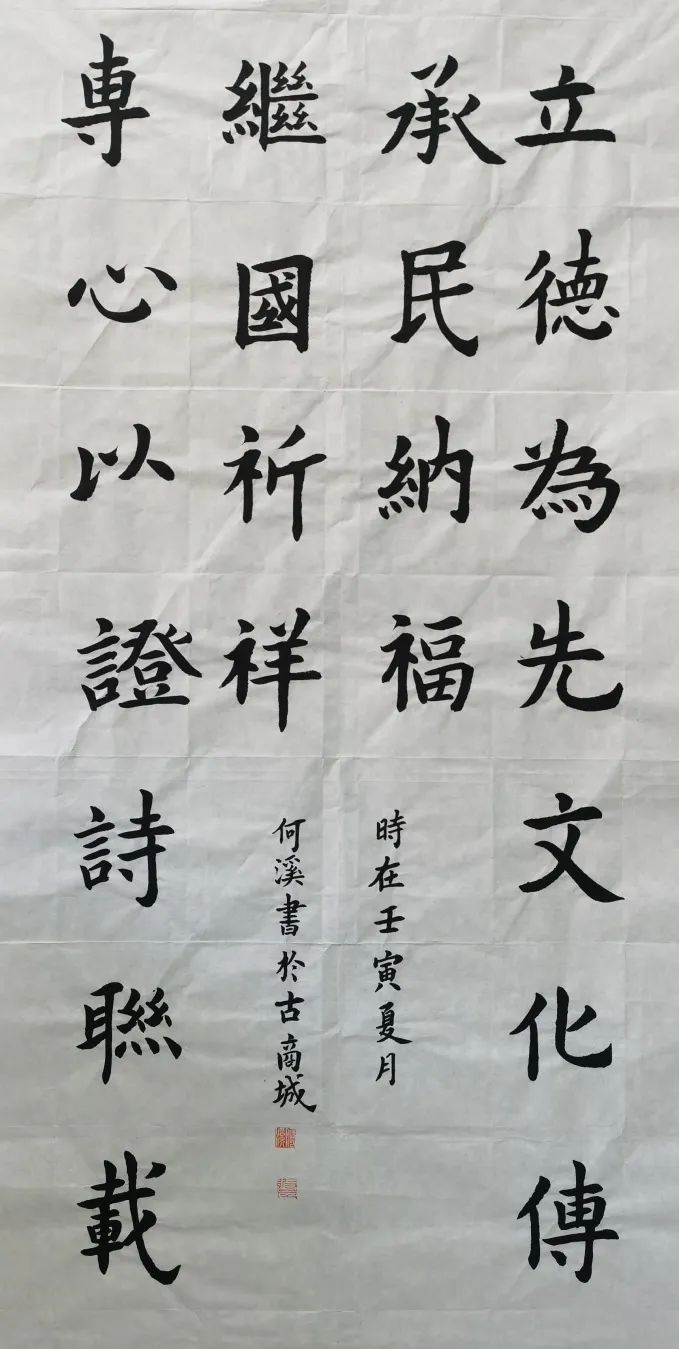 立德為先文化傳
承民納福
專心以證詩聯載
繼國祈祥
時在壬寅夏月
何溪書於古商城